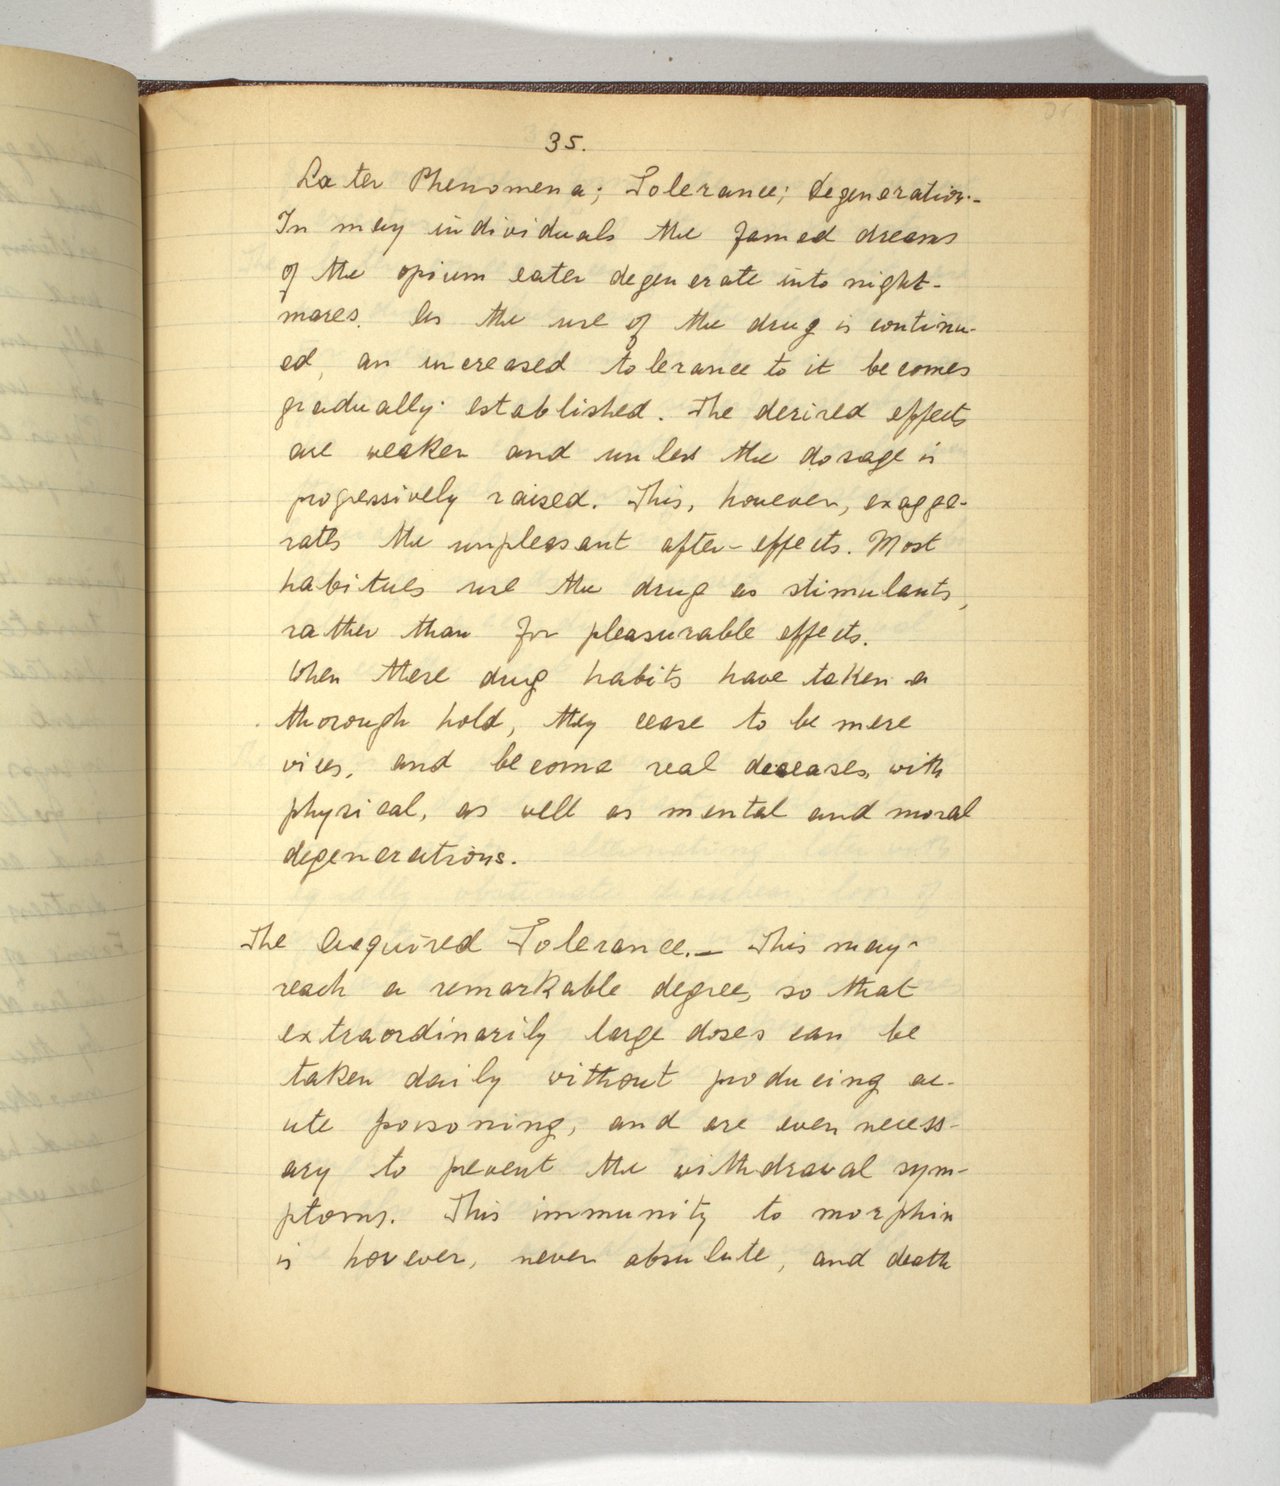 35.
Later Phenomena; Tolerance; Degeneration.-
In many individuals the famed dreams
of the opium eater degenerate into night-
mares. As the use of the drug is continu-
ed, an increased tolerance to it becomes
gradually established. The desired effects
are weaker and unless the dosage is
progressively raised. This, however, exagge-
rates the unpleasant after-effects. Most
habitues use the drug as stimulants,
rather than for pleasurable effects.
When these drug habits have taken a
thorough hold, they cease to be mere
vices, and become real deseases, with
physical, as well as mental and moral
degenerations.
The Acquired Tolerance.- This may
reach a remarkable degree, so that
extraordinarily large doses can be
taken daily without producing ac-
ute poisoning, and are even necess-
ary to prevent the withdrawal sym-
ptoms. This immunity to morphin
is however, never absolute, and death